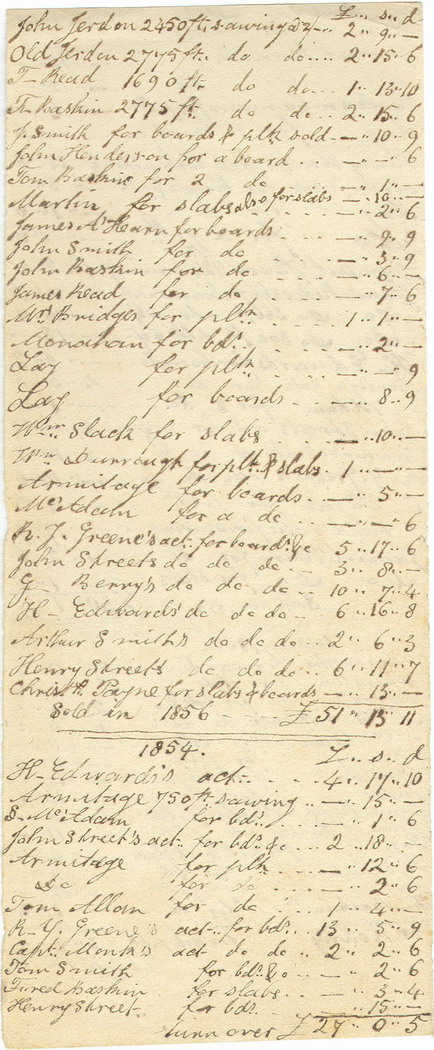 £ .. s .. d
John Jerdon 2450 ft. sawing @ 2/- .. 2 .. 9 .. —
Old Jerdon 2775 ft. do do .... 2 .. 15 .. 6
T- Read 1690 ft. do do .. 1 .. 13 .. 10
T. Baskin 2775 ft. do do .. 2 .. 15 .. 6
J. Smith for boards & plk sold — .. 10 .. 9
John Henderson for a board .. — .. — .. 6
Tom Baskin for 2 do — .. 1 .. —
Martin for slabs also for slabs — .. 10 .. —
— .. 2 .. 6
James A'Hearn for boards — .. 9 .. 9
John Smith for do — .. 3 .. 9
John Baskin for do — .. 6 .. —
James Read for do — .. 7 .. 6
Mrs. Bridges for plk 1 .. 1 .. —
Monahan for bds. — .. 2 .. —
Lay for plk — .. — .. 9
Lay for boards — .. 8 .. 9
Wm Slack for slabs — .. 10 .. —
Wm Durrough for plk & slabs . 1 .. — .. —
Armitage for boards .. — .. 5 .. —
McAdam for a do — .. — .. 6
R. J. Greene's act. for boards. &c 5 .. 17 .. 6
John Streets do do do — 3 .. 8 .. —
G. Berry's do do do 10 .. 7 .. 4
H Edwards' do do do — 6 .. 16 .. 8
Arthur Smith's do do do .. 2 .. 6 .. 3
Henry Street's do do do .. 6 .. 11 .. 7
Christr. Payne for slabs & boards — .. 13 .. —
Sold in 1856 £ 51 .. 15 .. 11
1854.
£ .. s .. d
H- Edwards's act .. 4 .. 17 .. 10
Armitage 750 ft. sawing .. — .. 15 .. —
S- McAdam for bds. — .. 1 .. 6
John Street's act. for bds. &c .. 2 .. 18 .. —
Armitage for plk — .. 12 .. 6
do for do — .. 2 .. 6
Tom Allan for do 1 .. 4 .. —
R. Y. Greene's act. for bds. 13 .. 5 .. 9
Capt. Monk's act do do .. 2 .. 2 .. 6
Tom Smith for bds. &c — .. 2 .. 6
Jured Baskin for slabs — .. 3 .. 4
Henry Street for bds. — .. 15 .. —
turn over £ 27 .. 0 .. 5